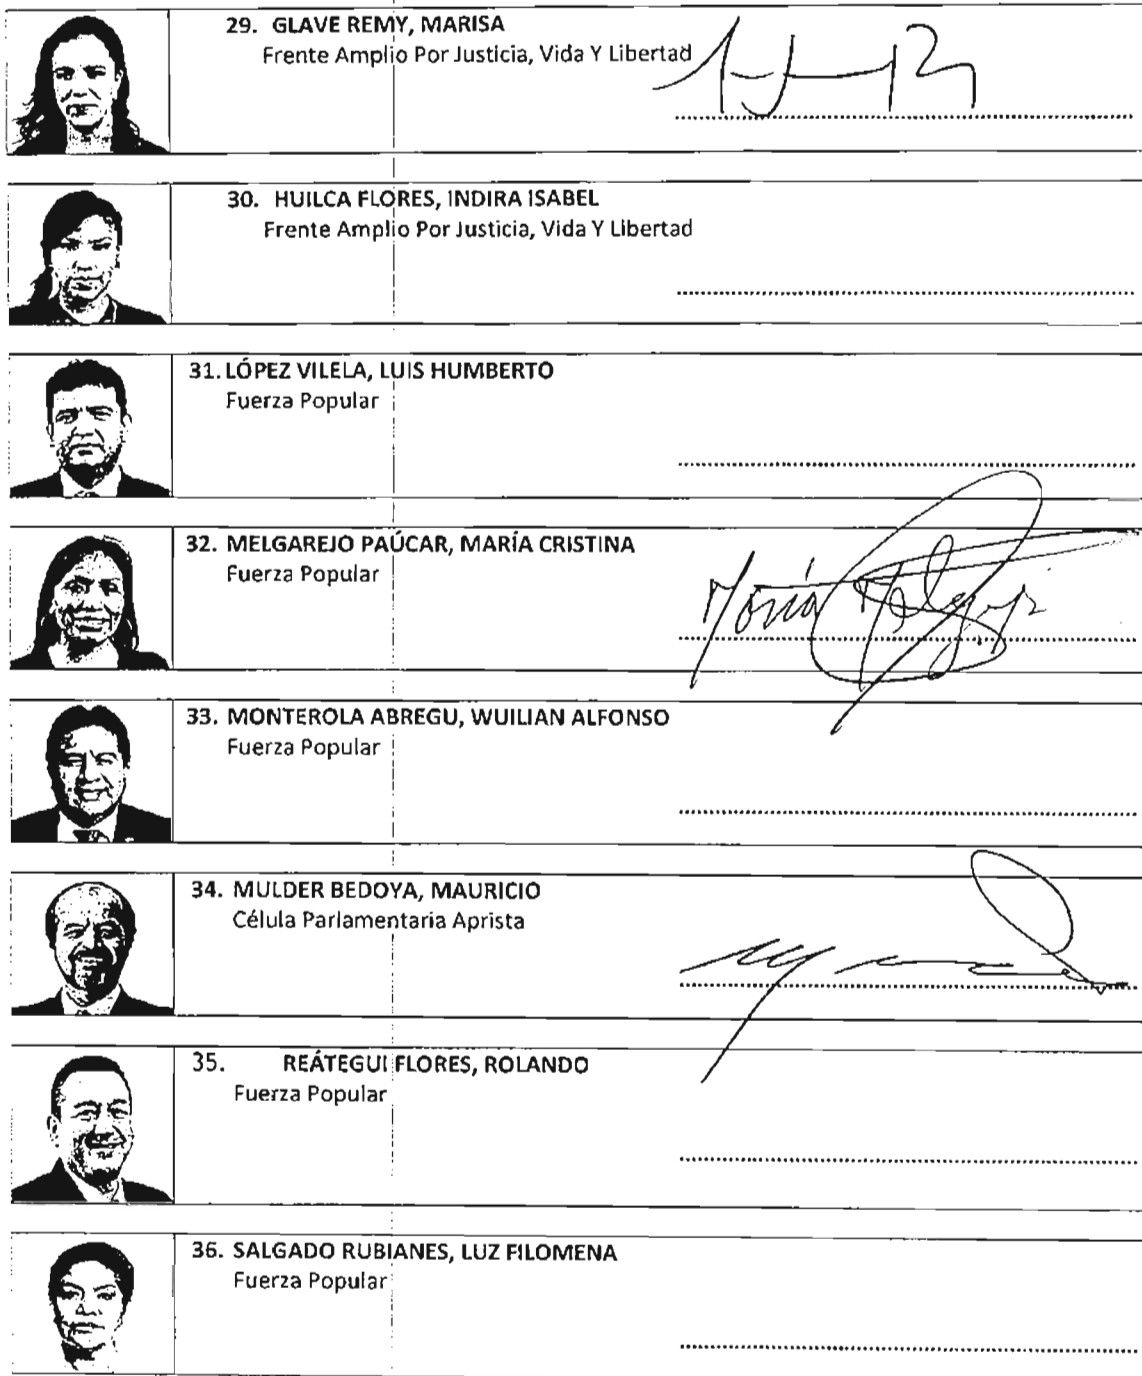 29. GLAVE REMY, MARISA
Frente Amplio Por Justicia, Vida Y Libertad
30. HUILCA FLORES, INDIRA ISABEL
Frente Amplio Por Justicia, Vida Y Libertad
31. LÓPEZ VILELA, LUIS HUMBERTO
Fuerza Popular
32. MELGAREJO PAÚCAR, MARÍA CRISTINA
Fuerza Popular
María
33. MONTEROLA ABREGU, WUILIAN ALFONSO
Fuerza Popular
34. MULDER BEDOYA, MAURICIO
Célula Parlamentaria Aprista
35. REÁTEGUI FLORES, ROLANDO
Fuerza Popular
36. SALGADO RUBIANES, LUZ FILOMENA
Fuerza Popular